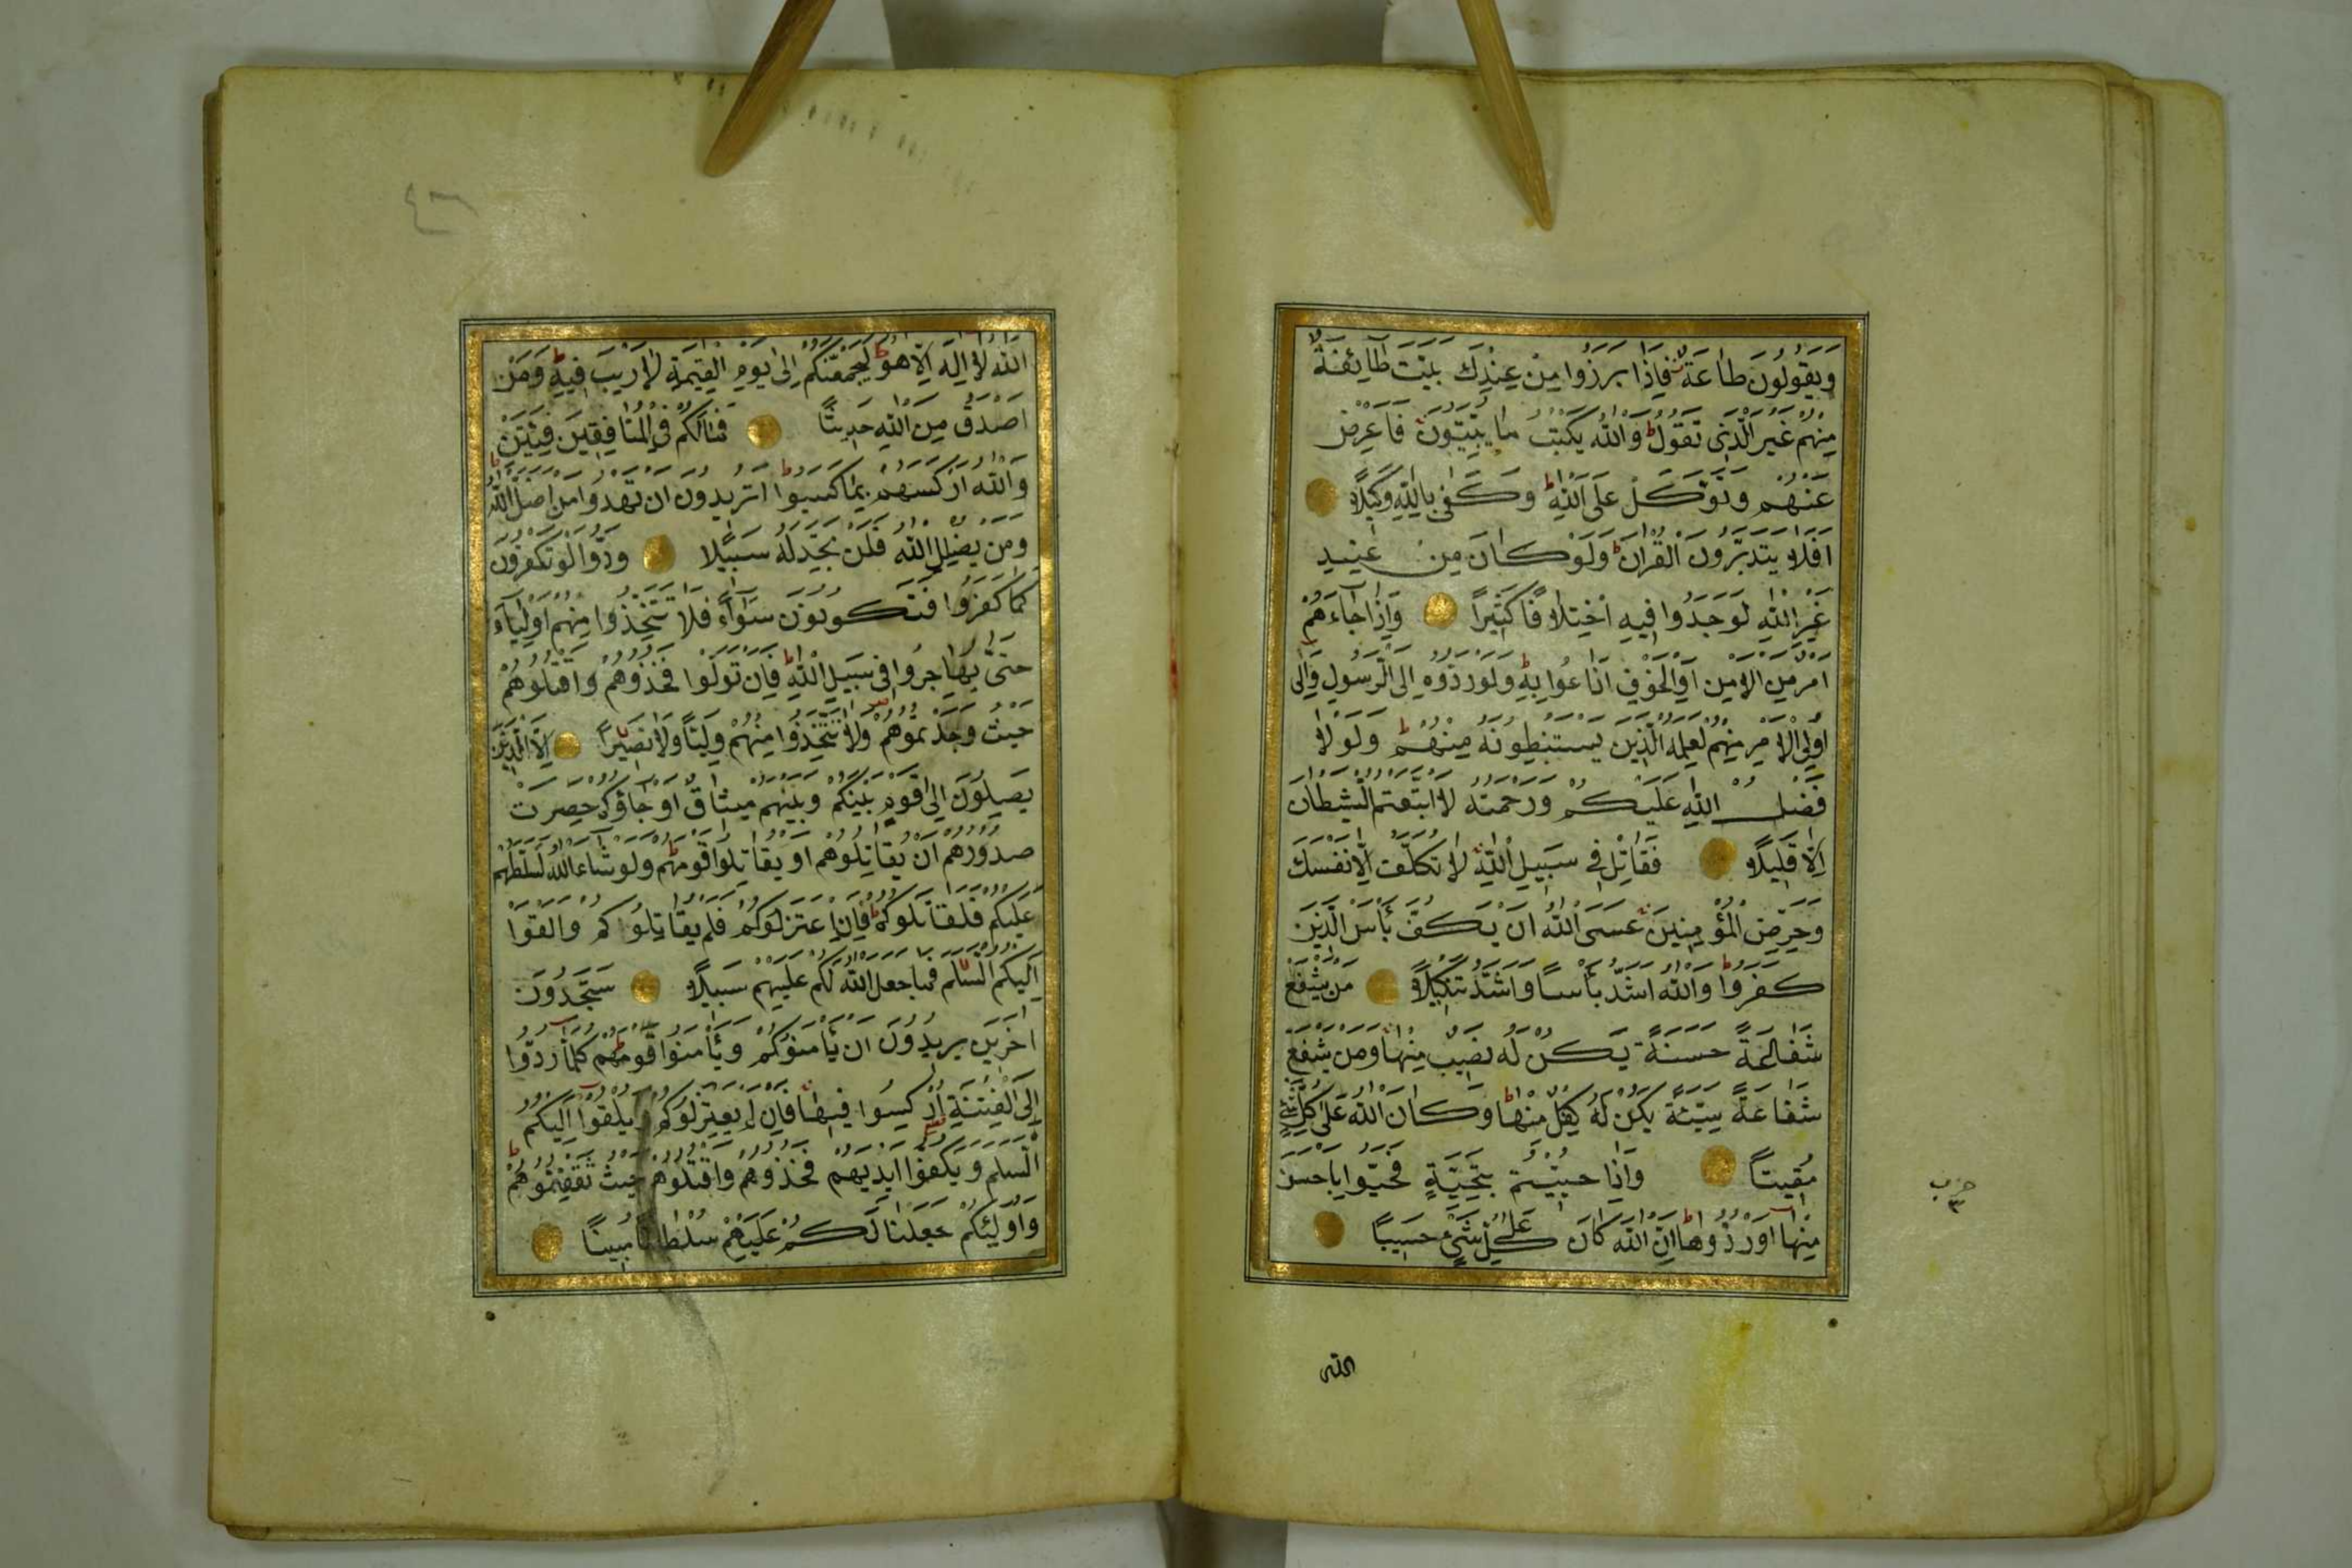 وَيَقُولُونَ طَاعَةٌ فَإِذَا بَرَزُوا مِنْ عِنْدِكَ بَيَّتَ طَآئِفَةٌ
مِنْهُمْ غَيْرَ الَّذِي تَقُولُ وَاللّٰهُ يَكْتُبُ مَا يُبَيِّتُونَ فَاَعْرِضْ
عَنْهُمْ وَتَوَكَّلْ عَلَى اللّٰهِ وَكَفٰى بِاللّٰهِ وَكِيلًا
اَفَلَا يَتَدَبَّرُونَ الْقُرْاٰنَ وَلَوْ كَانَ مِنْ عِنْدِ
غَيْرِ اللّٰهِ لَوَجَدُوا فِيهِ اخْتِلَافًا كَثِيرًا وَاِذَا جَآءَهُمْ
اَمْرٌ مِنَ الْاَمْنِ اَوِ الْخَوْفِ اَذَاعُوا بِهِ وَلَوْ رَدُّوهُ اِلَى الرَّسُولِ وَاِلٰى
اُولِي الْاَمْرِ مِنْهُمْ لَعَلِمَهُ الَّذِينَ يَسْتَنْبِطُونَهُ مِنْهُمْ وَلَوْلَا
فَضْلُ اللّٰهِ عَلَيْكُمْ وَرَحْمَتُهُ لَاتَّبَعْتُمُ الشَّيْطَانَ
اِلَّا قَلِيلًا فَقَاتِلْ فِي سَبِيلِ اللّٰهِ لَا تُكَلَّفُ اِلَّا نَفْسَكَ
وَحَرِّضِ الْمُؤْمِنِينَ عَسَى اللّٰهُ اَنْ يَكُفَّ بَأْسَ الَّذِينَ
كَفَرُوا وَاللّٰهُ اَشَدُّ بَأْسًا وَاَشَدُّ تَنْكِيلًا مَنْ يَشْفَعْ
شَفَاعَةً حَسَنَةً يَكُنْ لَهُ نَصِيبٌ مِنْهَا وَمَنْ يَشْفَعْ
شَفَاعَةً سَيِّئَةً يَكُنْ لَهُ كِفْلٌ مِنْهَا وَكَانَ اللّٰهُ عَلٰى كُلِّ شَيْءٍ
مُقِيتًا وَاِذَا حُيِّيتُمْ بِتَحِيَّةٍ فَحَيُّوا بِاَحْسَنَ
مِنْهَا اَوْ رُدُّوهَا اِنَّ اللّٰهَ كَانَ عَلٰى كُلِّ شَيْءٍ حَسِيبًا
حزب
٣
الله
اَللّٰهُ لَا اِلٰهَ اِلَّا هُوَ لَيَجْمَعَنَّكُمْ اِلٰى يَوْمِ الْقِيٰمَةِ لَا رَيْبَ فِيهِ وَمَنْ
اَصْدَقُ مِنَ اللّٰهِ حَدِيثًا فَمَا لَكُمْ فِي الْمُنَافِقِينَ فِئَتَيْنِ
وَاللّٰهُ اَرْكَسَهُمْ بِمَا كَسَبُوا اَتُرِيدُونَ اَنْ تَهْدُوا مَنْ اَضَلَّ اللّٰهُ
وَمَنْ يُضْلِلِ اللّٰهُ فَلَنْ تَجِدَ لَهُ سَبِيلًا وَدُّوا لَوْ تَكْفُرُونَ
كَمَا كَفَرُوا فَتَكُونُونَ سَوَآءً فَلَا تَتَّخِذُوا مِنْهُمْ اَوْلِيَآءَ
حَتّٰى يُهَاجِرُوا فِي سَبِيلِ اللّٰهِ فَاِنْ تَوَلَّوْا فَخُذُوهُمْ وَاقْتُلُوهُمْ
حَيْثُ وَجَدْتُمُوهُمْ وَلَا تَتَّخِذُوا مِنْهُمْ وَلِيًّا وَلَا نَصِيرًا اِلَّا الَّذِينَ
يَصِلُونَ اِلٰى قَوْمٍ بَيْنَكُمْ وَبَيْنَهُمْ مِيثَاقٌ اَوْ جَآؤُكُمْ حَصِرَتْ
صُدُورُهُمْ اَنْ يُقَاتِلُوكُمْ اَوْ يُقَاتِلُوا قَوْمَهُمْ وَلَوْ شَآءَ اللّٰهُ لَسَلَّطَهُمْ
عَلَيْكُمْ فَلَقَاتَلُوكُمْ فَاِنِ اعْتَزَلُوكُمْ فَلَمْ يُقَاتِلُوكُمْ وَاَلْقَوْا
اِلَيْكُمُ السَّلَمَ فَمَا جَعَلَ اللّٰهُ لَكُمْ عَلَيْهِمْ سَبِيلًا سَتَجِدُونَ
اٰخَرِينَ يُرِيدُونَ اَنْ يَأْمَنُوكُمْ وَيَأْمَنُوا قَوْمَهُمْ كُلَّمَا رُدُّوا
اِلَى الْفِتْنَةِ اُرْكِسُوا فِيهَا فَاِنْ لَمْ يَعْتَزِلُوكُمْ وَيُلْقُوا اِلَيْكُمُ
السَّلَمَ وَيَكُفُّوا اَيْدِيَهُمْ فَخُذُوهُمْ وَاقْتُلُوهُمْ حَيْثُ ثَقِفْتُمُوهُمْ
وَاُولٰئِكُمْ جَعَلْنَا لَكُمْ عَلَيْهِمْ سُلْطَانًا مُبِينًا